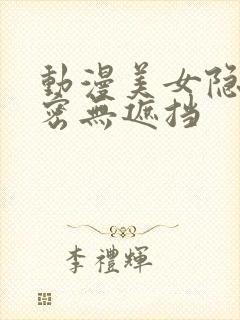 動漫美女隐
密無遮挡
李禮輝